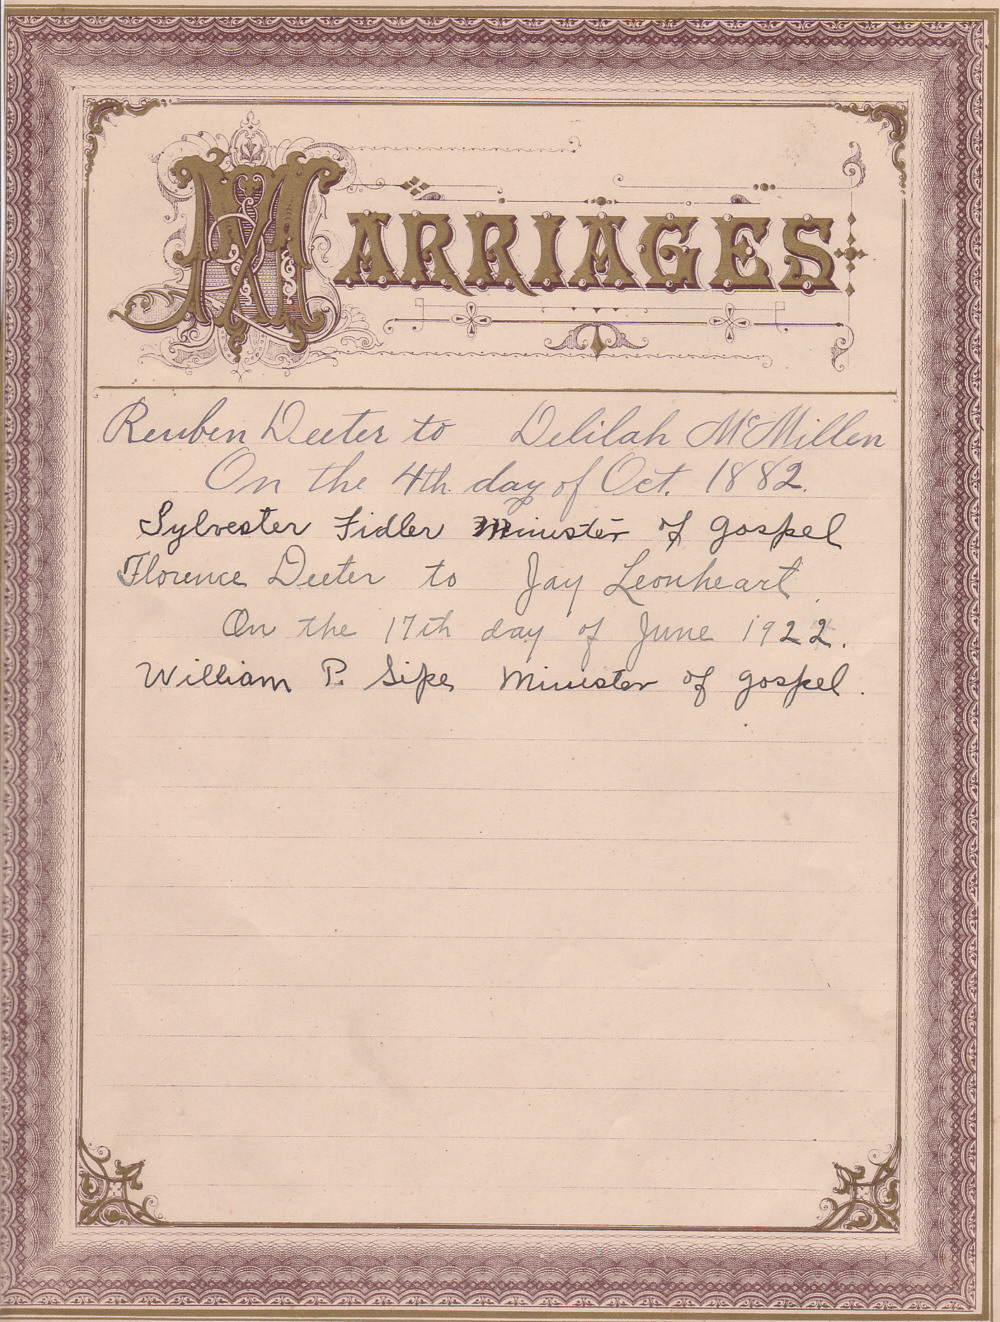 MARRIAGES
Reuben Deeter to Delilah McMillen
On the 4th day of Oct. 1882.
Sylvester Fidler Minister of gospel
Florence Deeter to Jay Leonheart.
On the 17th day of June 1922.
William P. Sipe Minister of gospel.